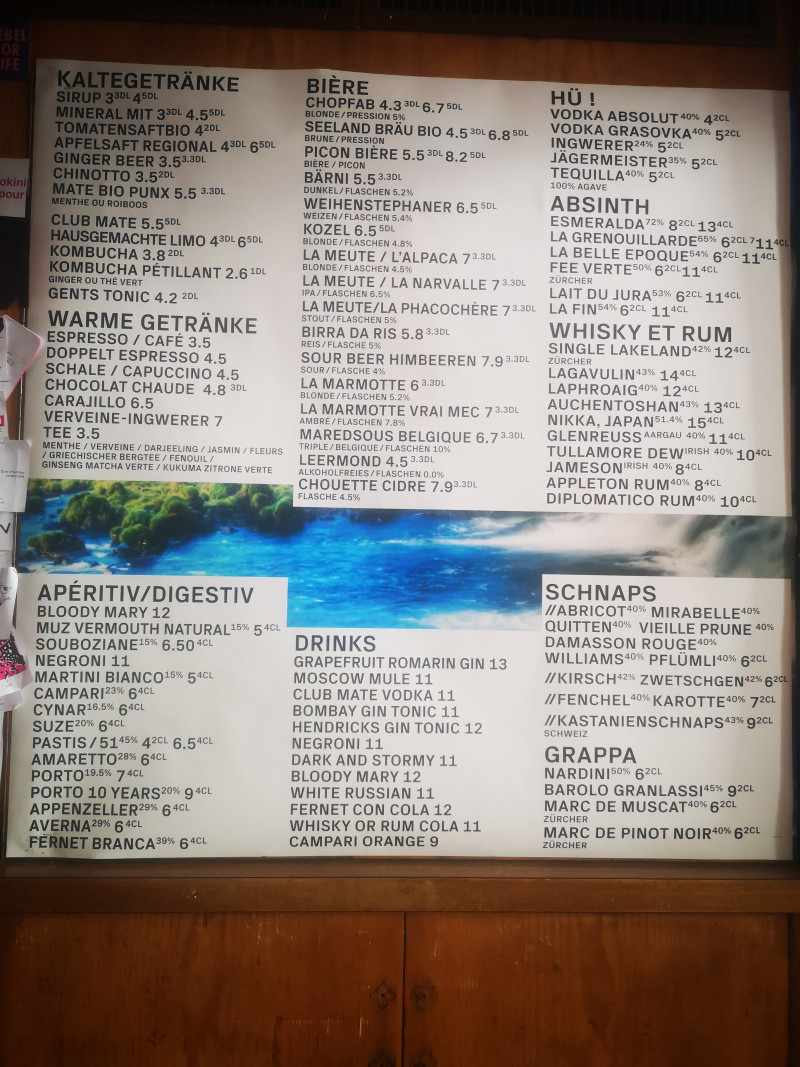 KALTEGETRÄNKE
SIRUP 3 3DL 4 5DL
MINERAL MIT 3 3DL 4.5 5DL
TOMATENSAFTBIO 4 2DL
APFELSAFT REGIONAL 4 3DL 6 5DL
GINGER BEER 3.5 3.3DL
CHINOTTO 3.5 2DL
MATE BIO PUNX 5.5 3.3DL
MENTHE OU ROIBOOS
CLUB MATE 5.5 5DL
HAUSGEMACHTE LIMO 4 3DL 6 5DL
KOMBUCHA 3.8 2DL
KOMBUCHA PÉTILLANT 2.6 1DL
GINGER OU THÉ VERT
GENTS TONIC 4.2 2DL
WARME GETRÄNKE
ESPRESSO / CAFÉ 3.5
DOPPELT ESPRESSO 4.5
SCHALE / CAPUCCINO 4.5
CHOCOLAT CHAUDE 4.8 3DL
CARAJILLO 6.5
VERVEINE-INGWERER 7
TEE 3.5
MENTHE / VERVEINE / DARJEELING / JASMIN / FLEURS
/ GRIECHISCHER BERGTEE / FENOUIL /
GINSENG MATCHA VERTE / KUKUMA ZITRONE VERTE
BIÈRE
CHOPFAB 4.3 3DL 6.7 5DL
BLONDE / PRESSION 5%
SEELAND BRÄU BIO 4.5 3DL 6.8 5DL
BRUNE / PRESSION
PICON BIÈRE 5.5 3DL 8.2 5DL
BIÈRE / PICON
BÄRNI 5.5 3.3DL
DUNKEL / FLASCHEN 5.2%
WEIHENSTEPHANER 6.5 5DL
WEIZEN / FLASCHEN 5.4%
KOZEL 6.5 5DL
BLONDE / FLASCHEN 4.8%
LA MEUTE / L'ALPACA 7 3.3DL
BLONDE / FLASCHEN 4.5%
LA MEUTE / LA NARVALLE 7 3.3DL
IPA / FLASCHEN 6.5%
LA MEUTE/LA PHACOCHÈRE 7 3.3DL
STOUT / FLASCHEN 5%
BIRRA DA RIS 5.8 3.3DL
REIS / FLASCHE 5%
SOUR BEER HIMBEEREN 7.9 3.3DL
SOUR / FLASCHE 4%
LA MARMOTTE 6 3.3DL
BLONDE / FLASCHEN 5.2%
LA MARMOTTE VRAI MEC 7 3.3DL
AMBRE / FLASCHEN 7.8%
MAREDSOUS BELGIQUE 6.7 3.3DL
TRIPLE / BELGIQUE / FLASCHEN 10%
LEERMOND 4.5 3.3DL
ALKOHOLFREIES / FLASCHEN 0.0%
CHOUETTE CIDRE 7.9 3.3DL
FLASCHE 4.5%
HÜ !
VODKA ABSOLUT 40% 4 2CL
VODKA GRASOVKA 40% 5 2CL
INGWERER 24% 5 2CL
JÄGERMEISTER 35% 5 2CL
TEQUILLA 40% 5 2CL
100% AGAVE
ABSINTH
ESMERALDA 72% 8 2CL 13 4CL
LA GRENOUILLARDE 65% 6 2CL 7 11 4CL
LA BELLE EPOQUE 54% 6 2CL 11 4CL
FEE VERTE 50% 6 2CL 11 4CL
ZÜRCHER
LAIT DU JURA 53% 6 2CL 11 4CL
LA FIN 54% 6 2CL 11 4CL
WHISKY ET RUM
SINGLE LAKELAND 42% 12 4CL
ZÜRCHER
LAGAVULIN 43% 14 4CL
LAPHROAIG 40% 12 4CL
AUCHENTOSHAN 43% 13 4CL
NIKKA, JAPAN 51.4% 15 4CL
GLENREUSS AARGAU 40% 11 4CL
TULLAMORE DEW IRISH 40% 10 4CL
JAMESON IRISH 40% 8 4CL
APPLETON RUM 40% 8 4CL
DIPLOMATICO RUM 40% 10 4CL
APÉRITIV/DIGESTIV
BLOODY MARY 12
MUZ VERMOUTH NATURAL 15% 5 4CL
SOUBOZIANE 15% 6.50 4CL
NEGRONI 11
MARTINI BIANCO 15% 5 4CL
CAMPARI 23% 6 4CL
CYNAR 16.5% 6 4CL
SUZE 20% 6 4CL
PASTIS / 51 45% 4 2CL 6.5 4CL
AMARETTO 28% 6 4CL
PORTO 19.5% 7 4CL
PORTO 10 YEARS 20% 9 4CL
APPENZELLER 29% 6 4CL
AVERNA 29% 6 4CL
FERNET BRANCA 39% 6 4CL
DRINKS
GRAPEFRUIT ROMARIN GIN 13
MOSCOW MULE 11
CLUB MATE VODKA 11
BOMBAY GIN TONIC 11
HENDRICKS GIN TONIC 12
NEGRONI 11
DARK AND STORMY 11
BLOODY MARY 12
WHITE RUSSIAN 11
FERNET CON COLA 12
WHISKY OR RUM COLA 11
CAMPARI ORANGE 9
SCHNAPS
//ABRICOT 40% MIRABELLE 40%
QUITTEN 40% VIEILLE PRUNE 40%
DAMASSON ROUGE 40%
WILLIAMS 40% PFLÜMLI 40% 6 2CL
//KIRSCH 42% ZWETSCHGEN 42% 6 2CL
//FENCHEL 40% KAROTTE 40% 7 2CL
//KASTANIENSCHNAPS 43% 9 2CL
SCHWEIZ
GRAPPA
NARDINI 50% 6 2CL
BAROLO GRANLASSI 45% 9 2CL
MARC DE MUSCAT 40% 6 2CL
ZÜRCHER
MARC DE PINOT NOIR 40% 6 2CL
ZÜRCHER
pour